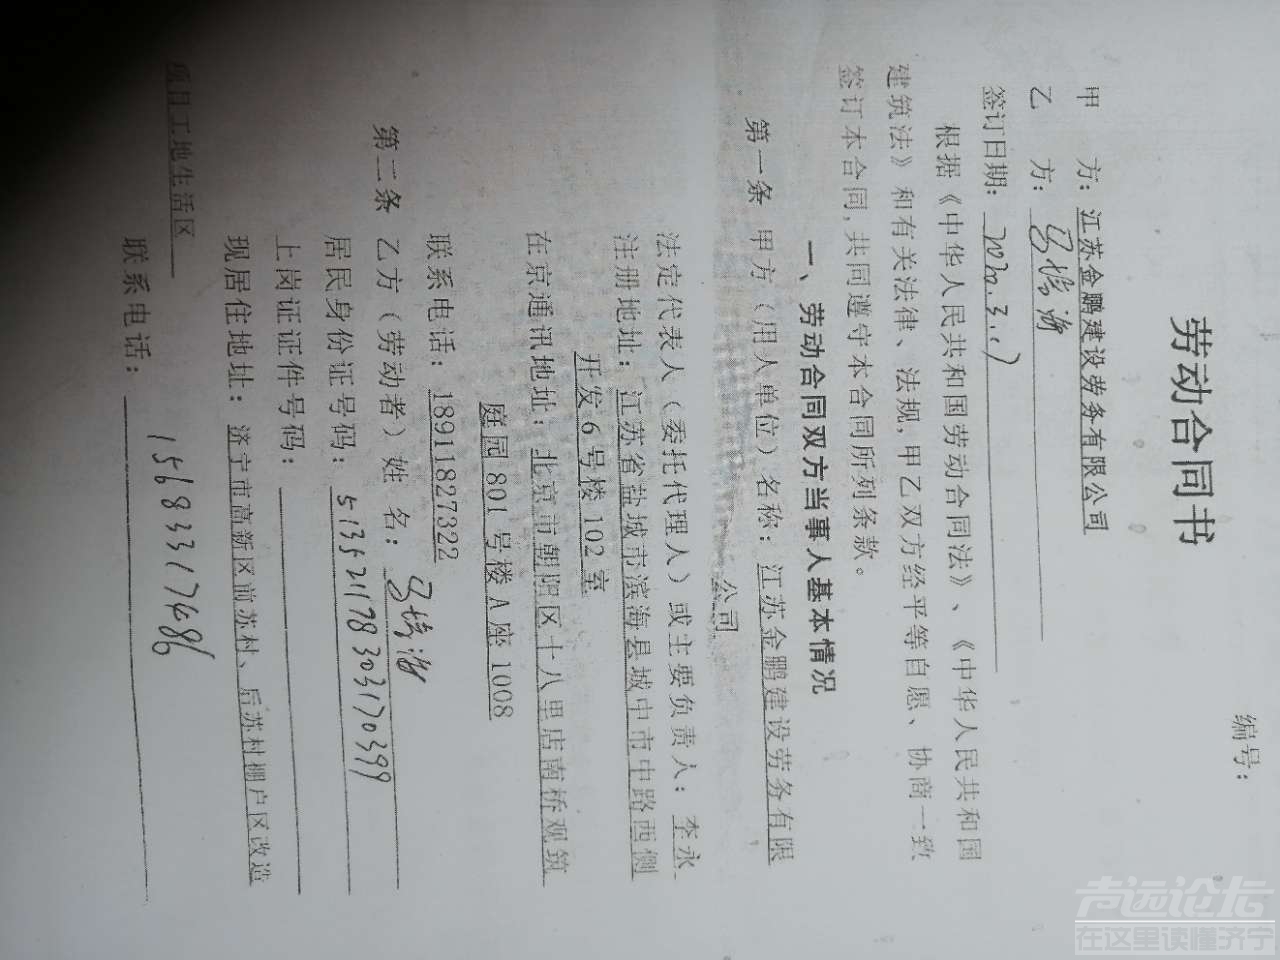 编号：
劳动合同书
甲 方：江苏金鹏建设劳务有限公司
乙 方：马培海
签订日期：2020.3.17
根据《中华人民共和国劳动合同法》、《中华人民共和国
建筑法》和有关法律、法规,甲乙双方经平等自愿、协商一致
签订本合同,共同遵守本合同所列条款。
一、劳动合同双方当事人基本情况
第一条 甲方（用人单位）名称：江苏金鹏建设劳务有限
公司
法定代表人（委托代理人）或主要负责人：李永
注册地址：江苏省盐城市滨海县城中市中路西侧
开发6号楼102室
在京通讯地址：北京市朝阳区十八里店南桥观筑
庭园801号楼A座1008
联系电话：18911827322
第二条 乙方（劳动者）姓 名：马培海
居民身份证号码：5135211978303170399
上岗证证件号码：
现居住地址：济宁市高新区前苏村、后苏村棚户区改造
项目工地生活区
联系电话：15683317486
声远论坛
在这里读懂济宁